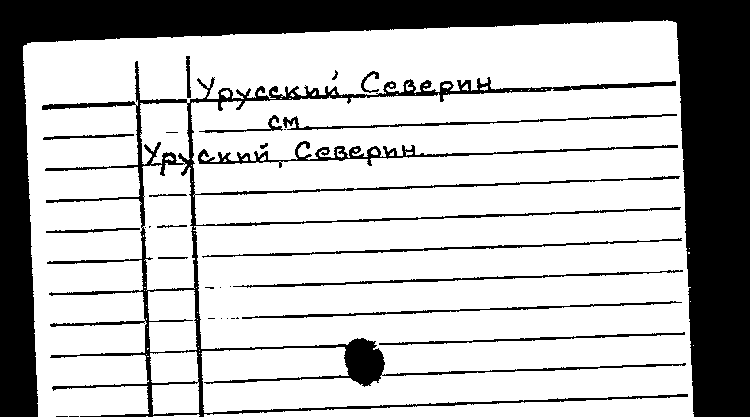 Урусский, Северин
см.
Уруский, Северин.